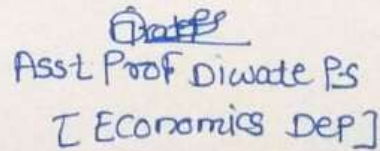 Asst Prof Diwate P.S
[ Economics Dep ]